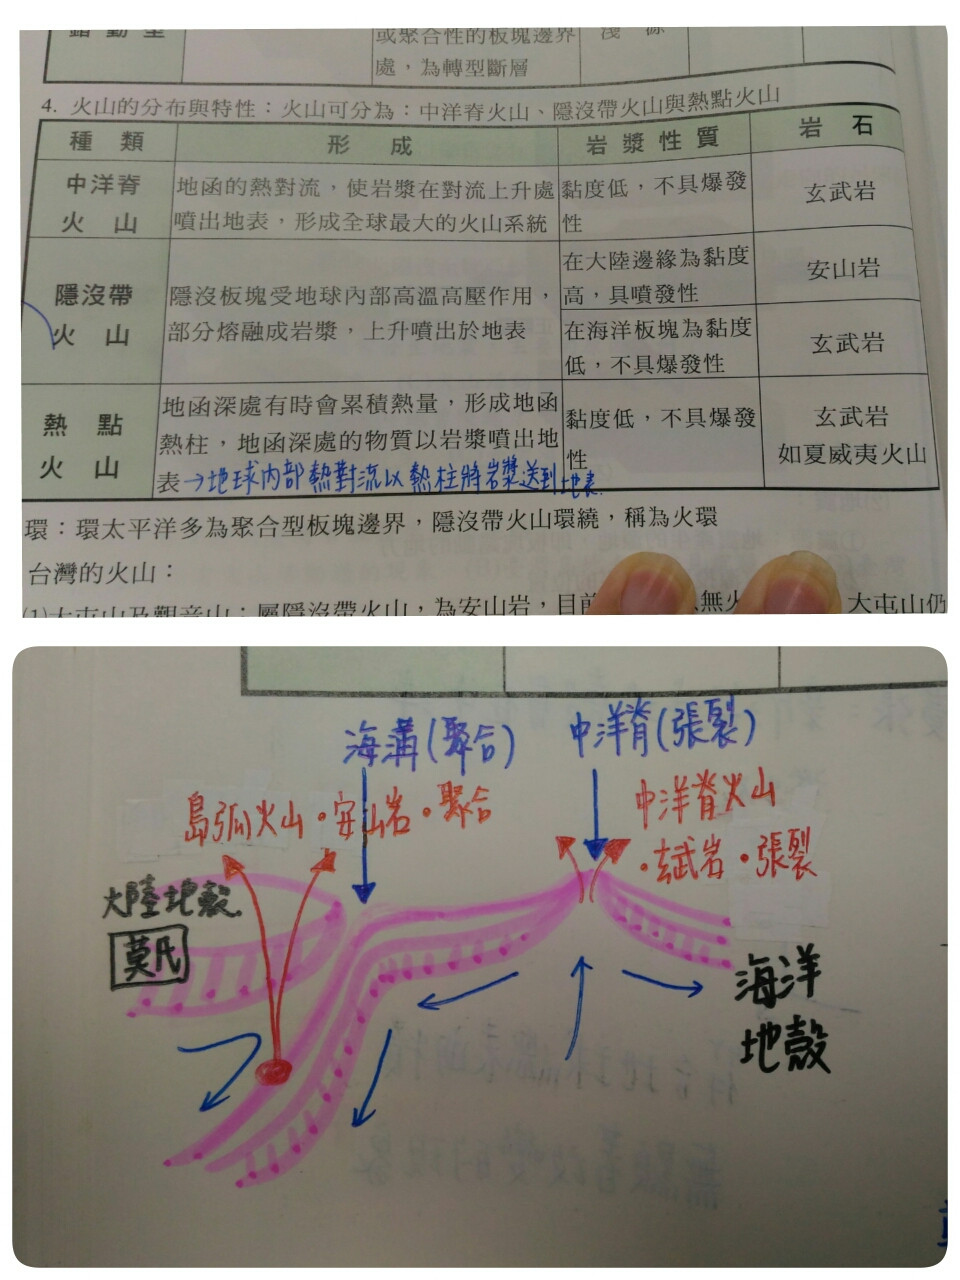 錯動型
或聚合性的板塊邊界
處，為轉型斷層
淺源
4. 火山的分布與特性：火山可分為：中洋脊火山、隱沒帶火山與熱點火山
種類 形成 岩漿性質 岩石
中洋脊
火山
地函的熱對流，使岩漿在對流上升處
噴出地表，形成全球最大的火山系統
黏度低，不具爆發
性
玄武岩
隱沒帶
火山
隱沒板塊受地球內部高溫高壓作用，
部分熔融成岩漿，上升噴出於地表
在大陸邊緣為黏度
高，具噴發性
安山岩
在海洋板塊為黏度
低，不具爆發性
玄武岩
熱點
火山
地函深處有時會累積熱量，形成地函
熱柱，地函深處的物質以岩漿噴出地
表→地球內部熱對流以熱柱將岩漿送到地表
黏度低，不具爆發
性
玄武岩
如夏威夷火山
環：環太平洋多為聚合型板塊邊界，隱沒帶火山環繞，稱為火環
台灣的火山：
(1)大屯山及觀音山：屬隱沒帶火山，為安山岩，目前 無火 大屯山仍
海溝(聚合) 中洋脊(張裂)
島弧火山·安山岩·聚合
中洋脊火山
·玄武岩·張裂
大陸地殼
莫氏
海洋
地殼